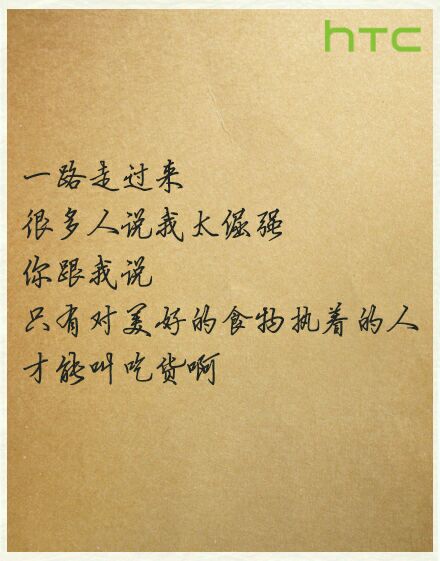 hTC
一路走过来
很多人说我太倔强
你跟我说
只有对美好的食物执着的人
才能叫吃货啊